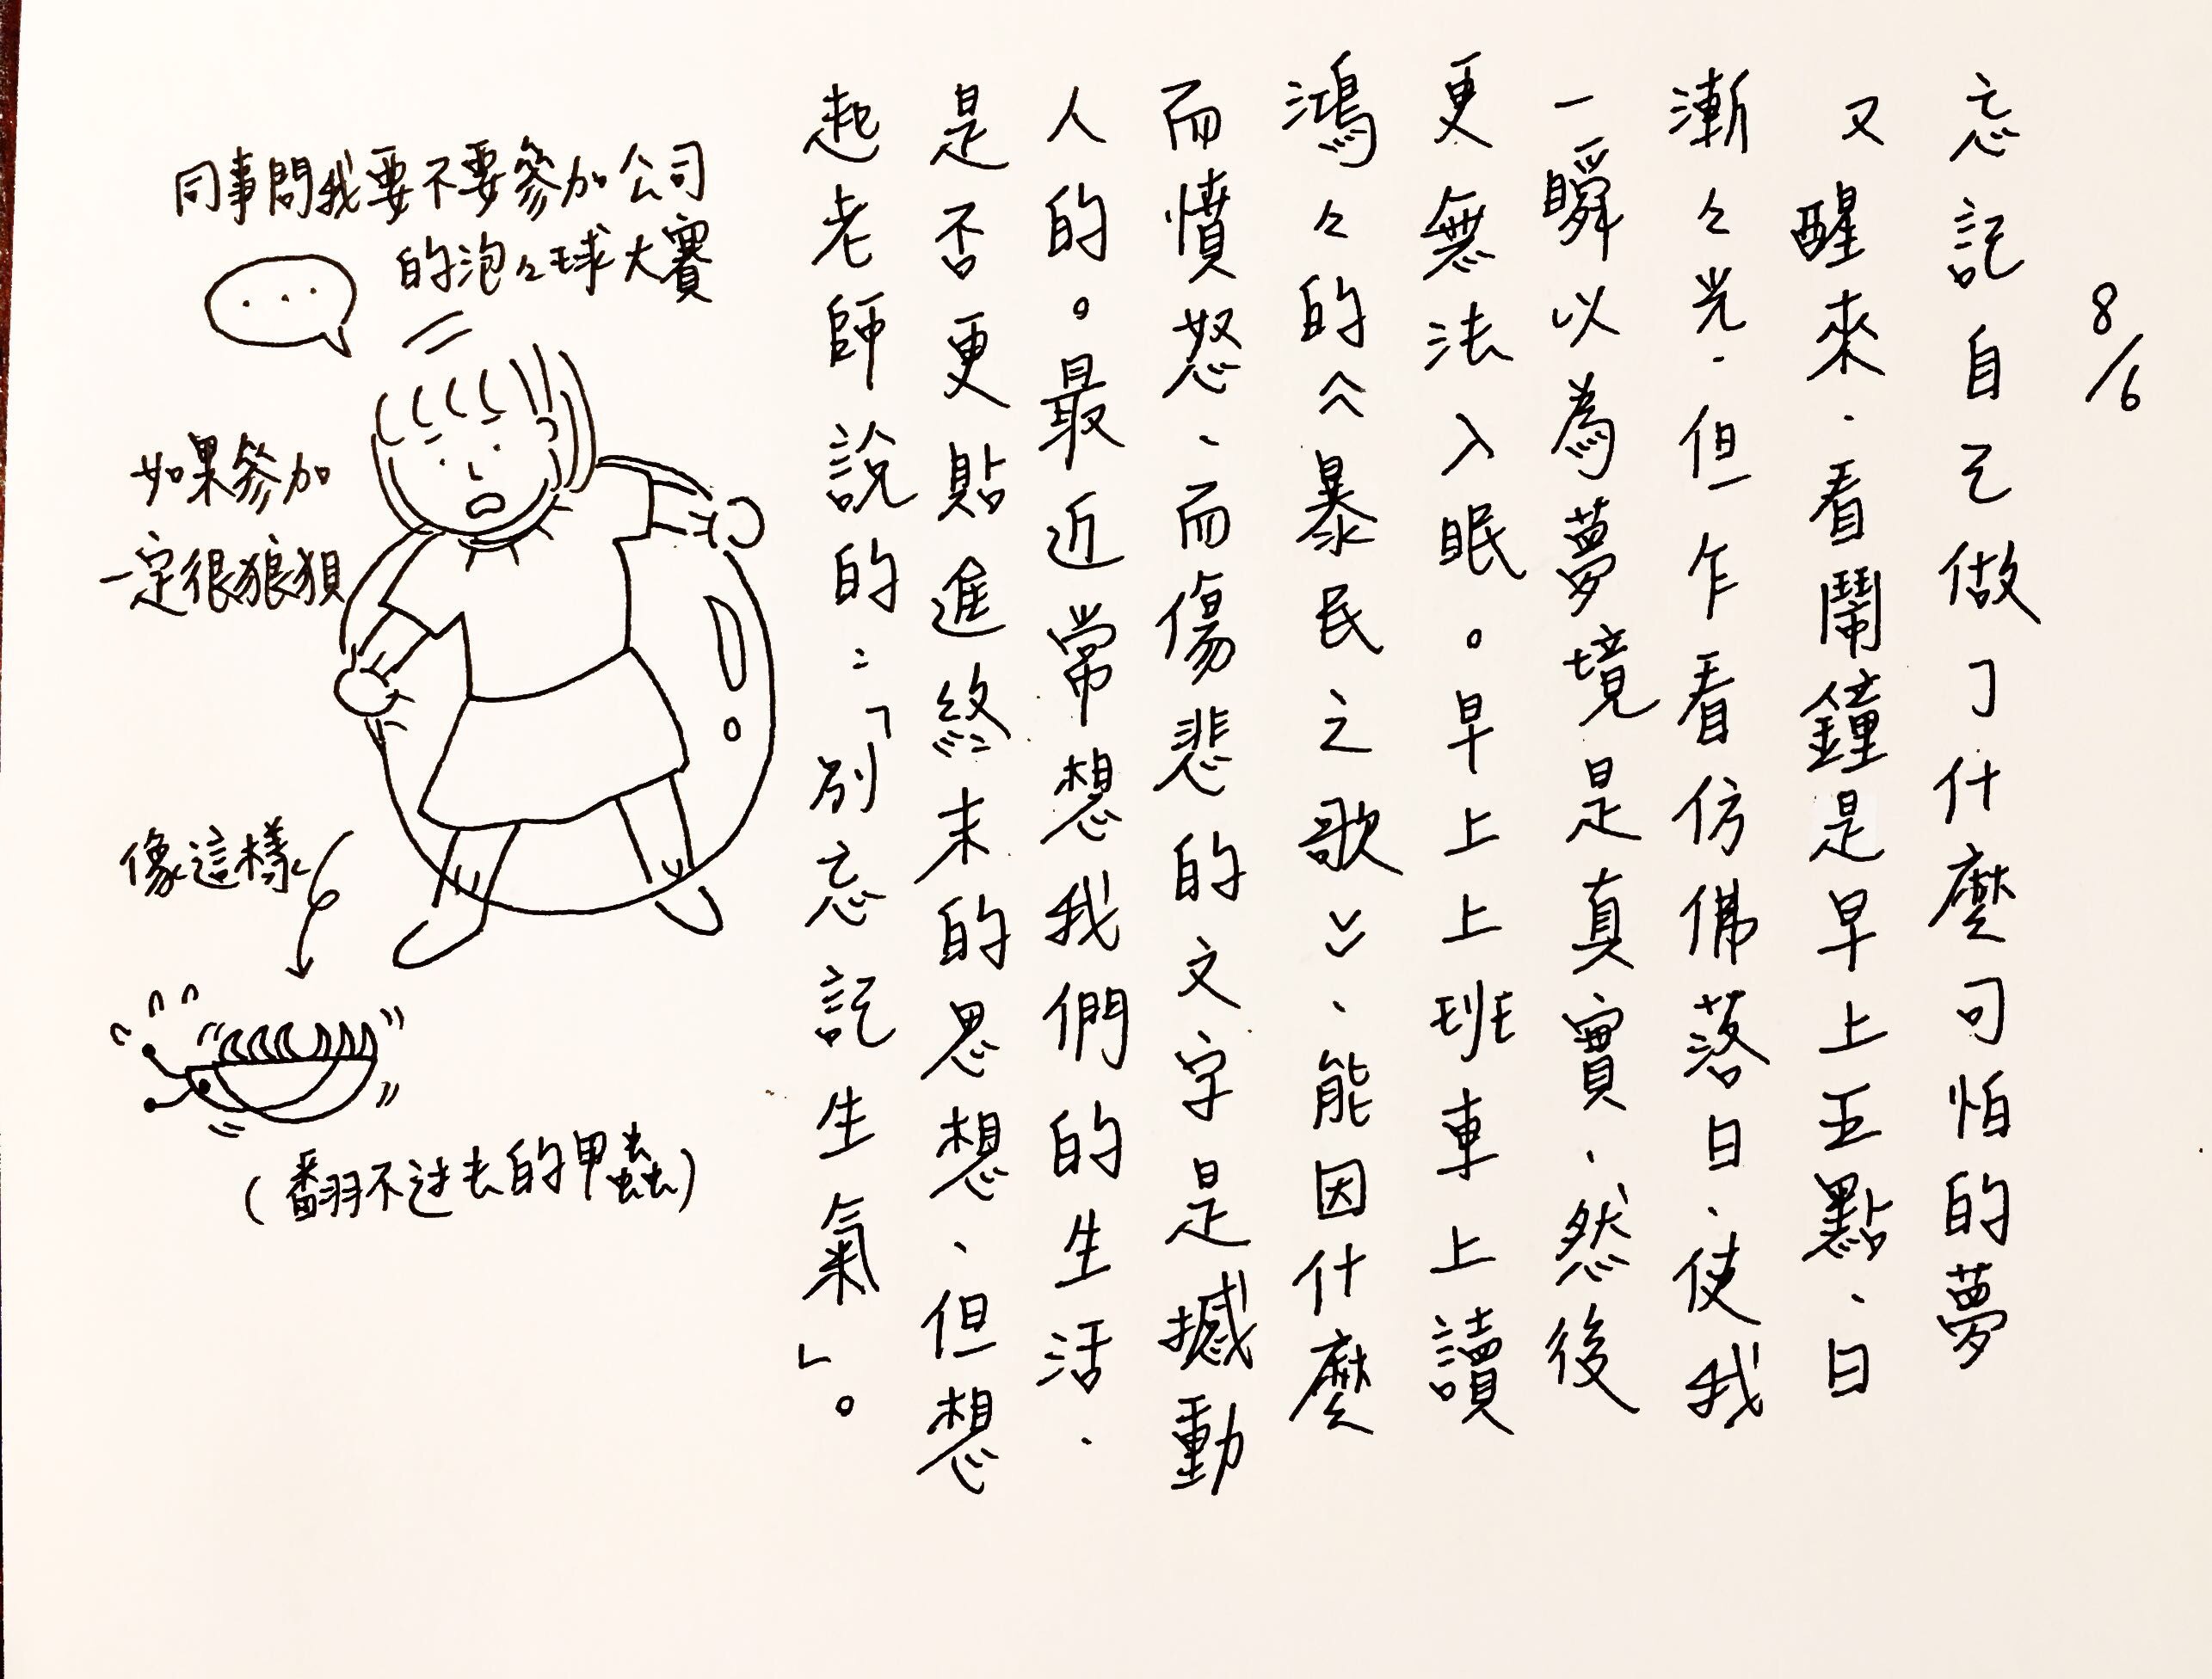 8/6
忘記自己做了什麼可怕的夢
又醒來、看鬧鐘是早上五點、日
漸々光、但乍看彷彿落日、使我
一瞬以為夢境是真實、然後
更無法入眠。早上上班車上讀
鴻々的《暴民之歌》、能因什麼
而憤怒、而傷悲的文字是撼動
人的。最近常想我們的生活、
是否更貼進終末的思想、但想
起老師說的：「別忘記生氣」。
同事問我要不要參加公司
的泡々球大賽
...
如果參加
一定很狼狽
像這樣
(翻不过去的甲蟲)